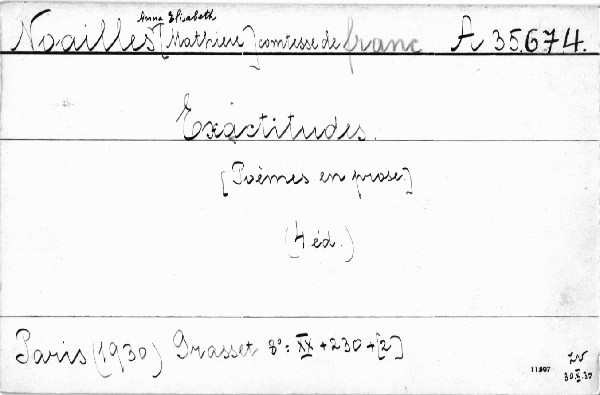 Anna Elisabeth
Noailles [Mathieu] comtesse de franc A 35.674.
Exactitudes.
[Poèmes en prose.]
(4 éd.)
Paris (1930) Grasset 8°: XX + 230 + [2]
11597
30.X.30